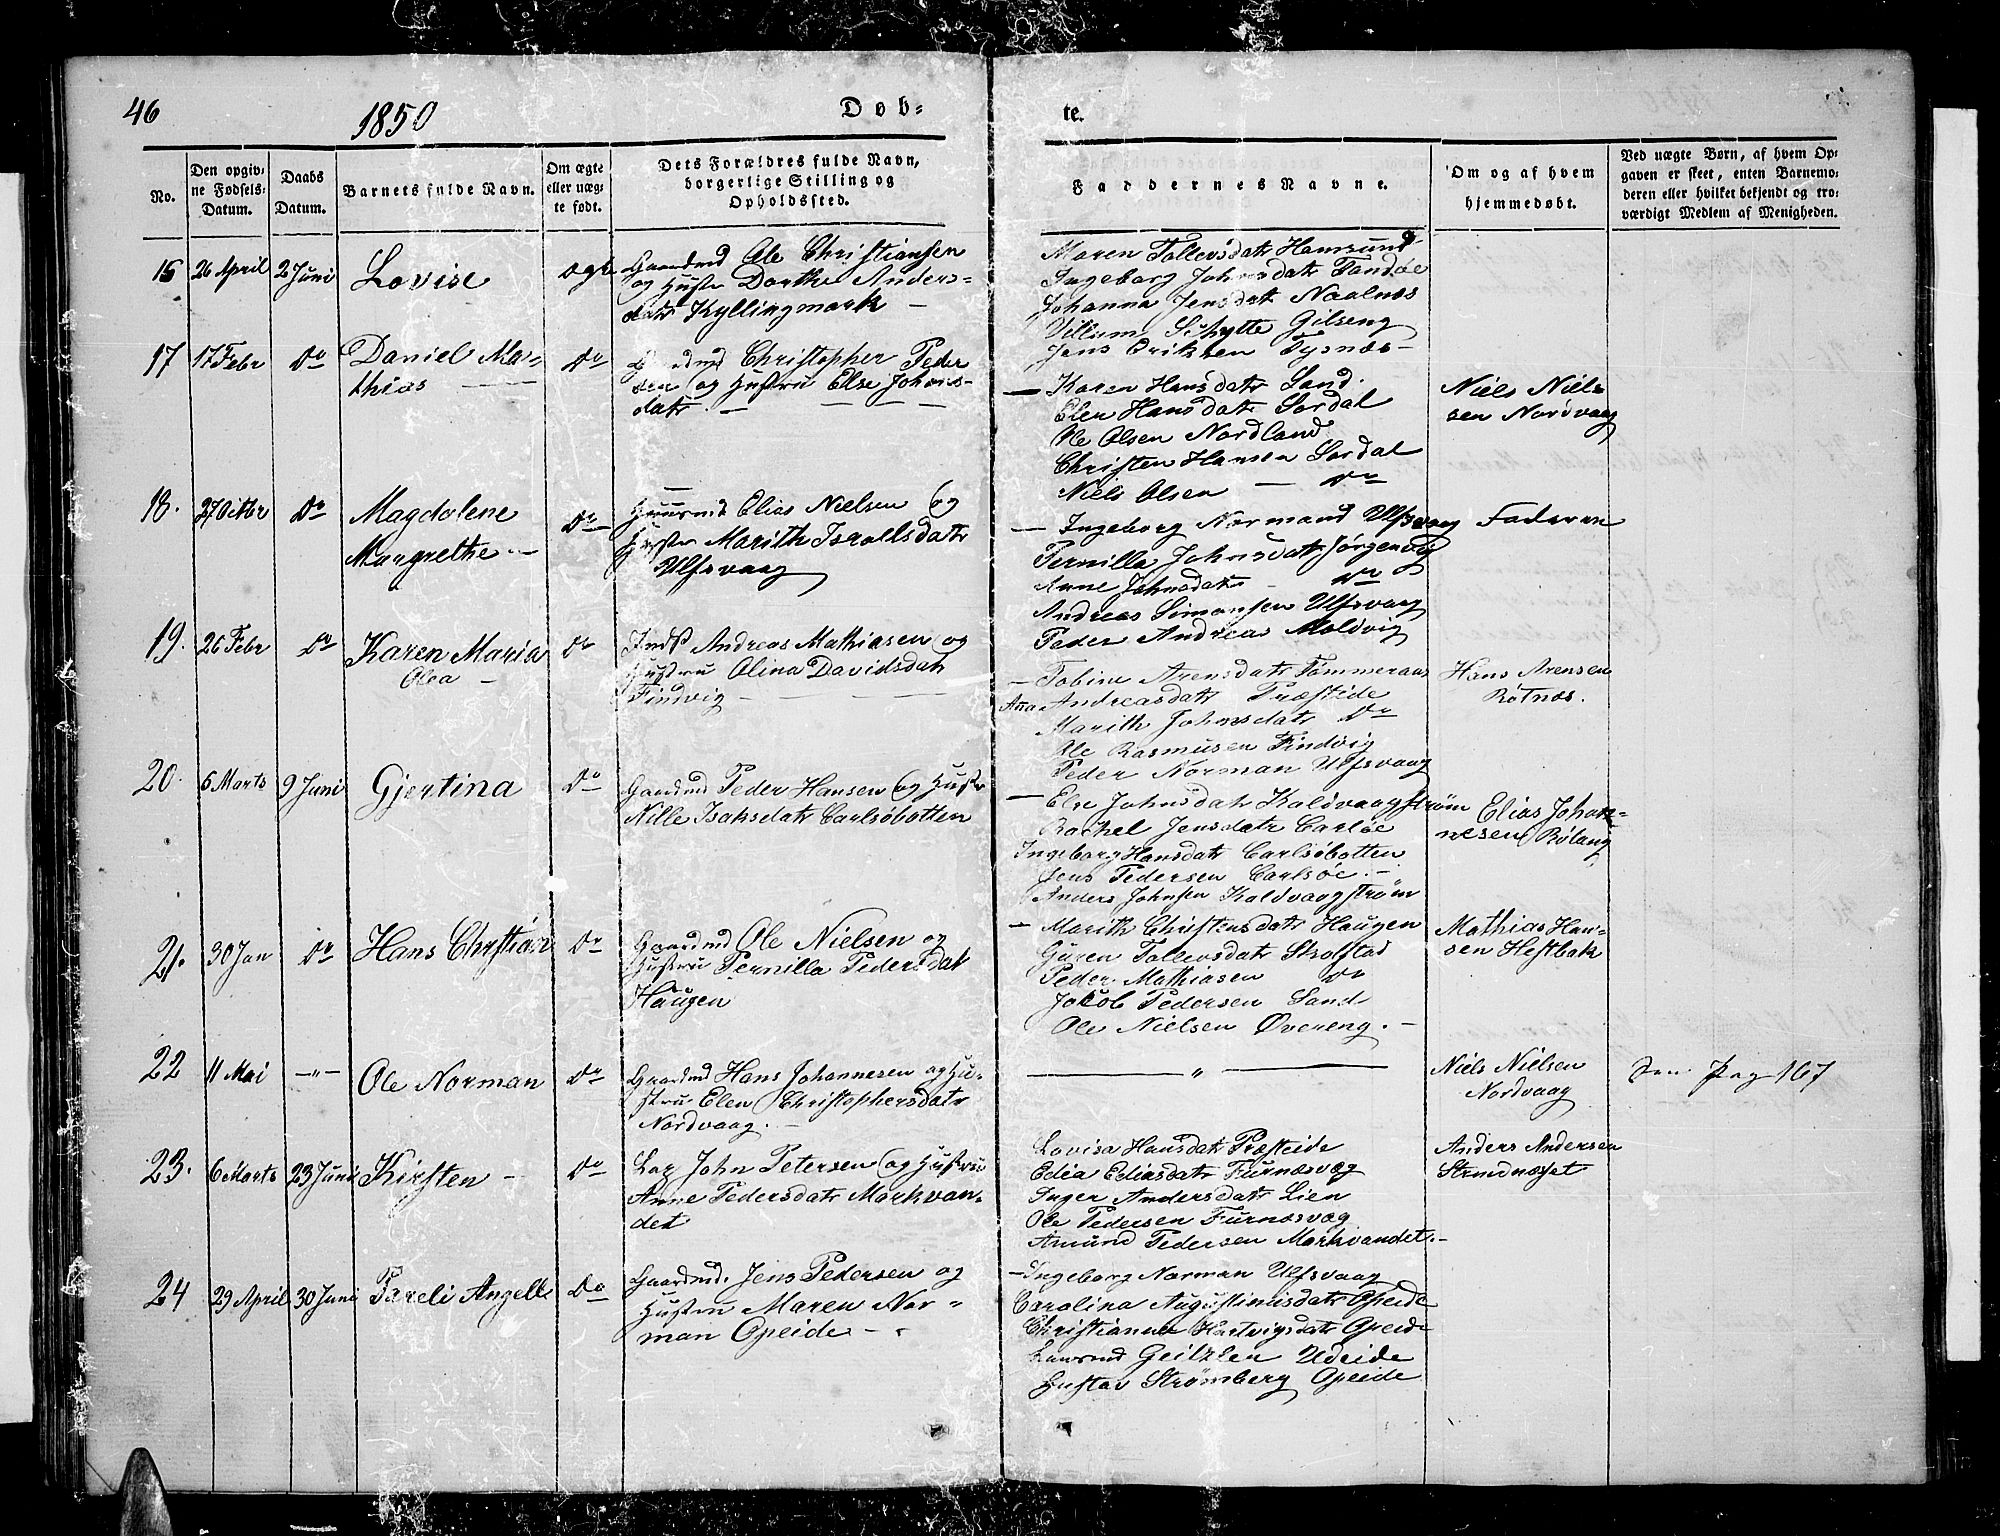 46
1850
Døb-
te.
No.
Den opgiv-
ne Fødsels-
Datum.
Daabs
Datum.
Barnets fulde Navn.
Om ægte
eller uæg-
te født.
Dets Forældres fulde Navn,
borgerlige Stilling og
Opholdssted.
Faddernes Navne.
Om og af hvem
hjemmedøbt.
Ved uægte Børn, af hvem Op-
gaven er skeet, enten Barnemo-
deren eller hvilket bekjendt og tro-
værdigt Medlem af Menigheden.
16
26 April
2 Juni
Lovise
Ægte
Gaardmd Ole Christiansen
og Hustr Dorthe Anders-
datr Kyllingmark
Maren Tollevsdatr Hamsund
Ingeborg Johnsdatr
Johanna Jensdatr Naalnes
Villum Schytte Gilseng
Jens Eriksen Tysnæs
17
17 Febr
Do
Daniel Ma-
thias
Do
Gaardmd Christopher Peder
sen og Hustru Else Johans-
datr
Karen Hansdatr Sand.
Elen Hansdatr Sørdal
Ole Olsen Nordland
Christen Hansen Sørdal
Niels Olsen - Do
Niels Niel-
sen Nordvaag
18.
27 Octbr
Do
Magdalene
Margrethe
Do
Huusmd Elias Nielsen og
Hustr Marith Israelsdatr
Ulfsvaag
Ingeborg Normand Ulfsvaag
Pernilla Johnsdatr Jørgenvig
Anne Johnsdatr - Do
Andreas Simonsen Ulfsvaag
Peder Andreas Moldvig
Faderen
19.
26 Febr
Do
Karen Maria
Olea
Do
Inds Andreas Mathiasen og
Hustru Olina Davidsdatr
Findvig
Tobine Arensdatr Tømmeraas
Ana Andreasdatr Præsteide
Marith Johnsdatr Do
Ole Rasmusen Findvig
Peder Norman Ulfsvaag
Hans Arensen
Røtnæs.
20
6 Marts
9 Juni
Gjertina
Do
Gaardmd Peder Hansen og Hustr
Nille Isaksdatr Carlsøbotten
Else Johnsdatr Kaldvaagstrøm
Rachel Jensdatr Carlsøe
Ingeborg Hansdatr Carlsøbotten
Jens Pedersen Carlsøe.
Anders Johnsen Kaldvaagstrøm
Elias Johan-
nesen Røtang
21.
30 Jan
Do
Hans Christian
Do
Gaardmd Ole Nielsen og
Hustru Pernilla Pedersdat
Haugen
Marith Christensdatr Haugen
Guren Tollevsdatr Skotstad
Peder Mathiasen Do
Jakob Pedersen Sand
Ole Nielsen Øvereng.
Mathias Han-
sen Hestbak
22
11 Mai
-"-
Ole Norman
Do
Gaardmd Hans Johannesen og Hu-
stru Elen Christophersdatr
Nordvaag.
"
Niels Nielsen
Nordvaag
Pag 167
23.
6 Marts
23 Juni
Kirsten
Do
Log John Petersen og Hustru
Anne Pedersdatr Markvan-
det
Lovisa Hansdatr Præsteide
Edia Ediasdatr Furnæsvag
Inger Andersdatr Lien
Ole Pedersen Furnæsvag
Amund Pedersen Markvandet.
Anders Andersen
Strindnæset
24
29 April
30 Juni
Pareli Angell
Do
Gaardmd. Jens Pedersen og
Hustru Maren Nor-
man Opeide
Ingeborg Norman Ulfsvaag
Carolina Augustinusdatr Opeide
Christianne Hartvigsdatr Opeide
Geitzlen Udeide
Gustav Strømberg Opeide